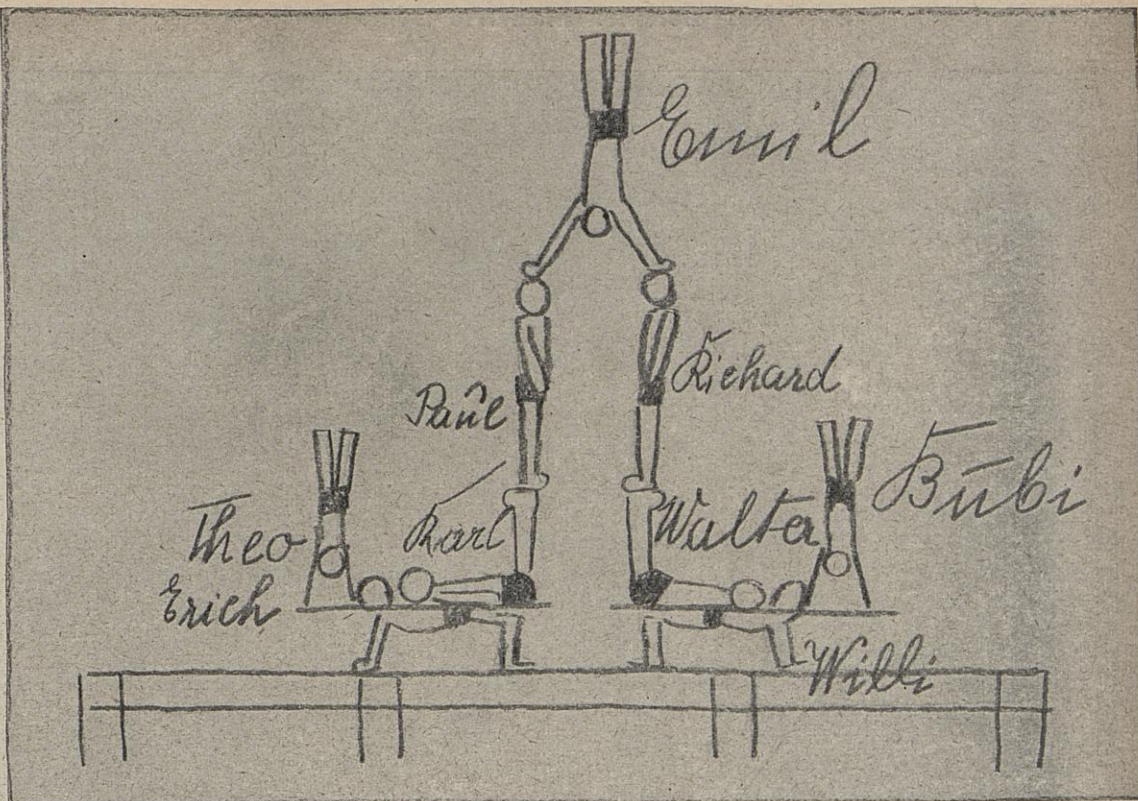 Emil
Richard
Paul
Bubi
Theo
Karl
Walter
Erich
Willi